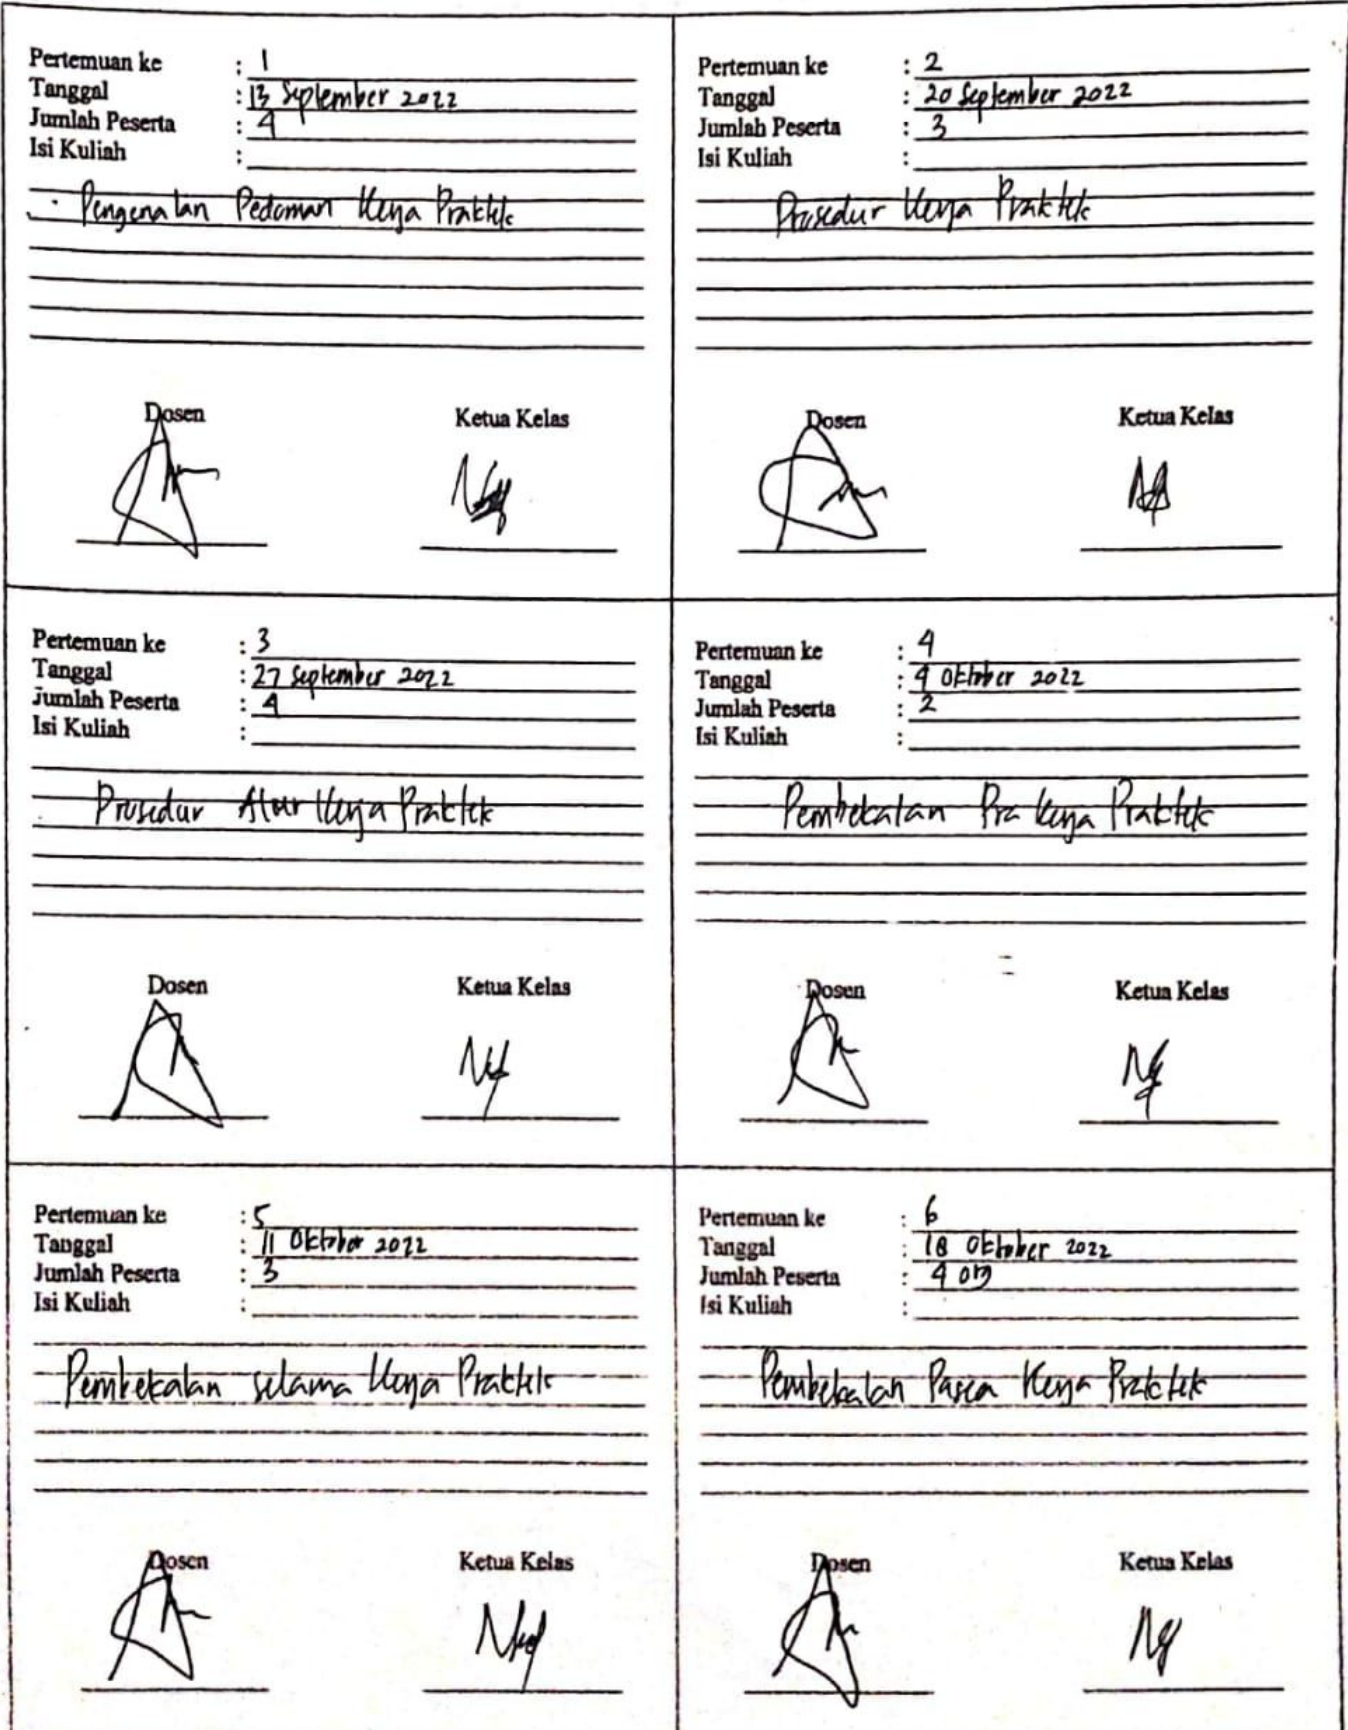 Pertemuan ke : 1
Tanggal : 13 September 2022
Jumlah Peserta : 4
Isi Kuliah :
· Pengenalan Pedoman Kerja Praktek
Dosen Ketua Kelas
Pertemuan ke : 2
Tanggal : 20 September 2022
Jumlah Peserta : 3
Isi Kuliah :
Prosedur Kerja Praktek
Dosen Ketua Kelas
Pertemuan ke : 3
Tanggal : 27 September 2022
Jumlah Peserta : 4
Isi Kuliah :
Prosedur Alur Kerja Praktek
Dosen Ketua Kelas
Pertemuan ke : 4
Tanggal : 4 Oktober 2022
Jumlah Peserta : 2
Isi Kuliah :
Pembekalan Pra Kerja Praktek
Dosen Ketua Kelas
Pertemuan ke : 5
Tanggal : 11 Oktober 2022
Jumlah Peserta : 3
Isi Kuliah :
Pembekalan selama Kerja Praktek
Dosen Ketua Kelas
Pertemuan ke : 6
Tanggal : 18 Oktober 2022
Jumlah Peserta : 4 org
Isi Kuliah :
Pembekalan Pasca Kerja Praktek
Dosen Ketua Kelas